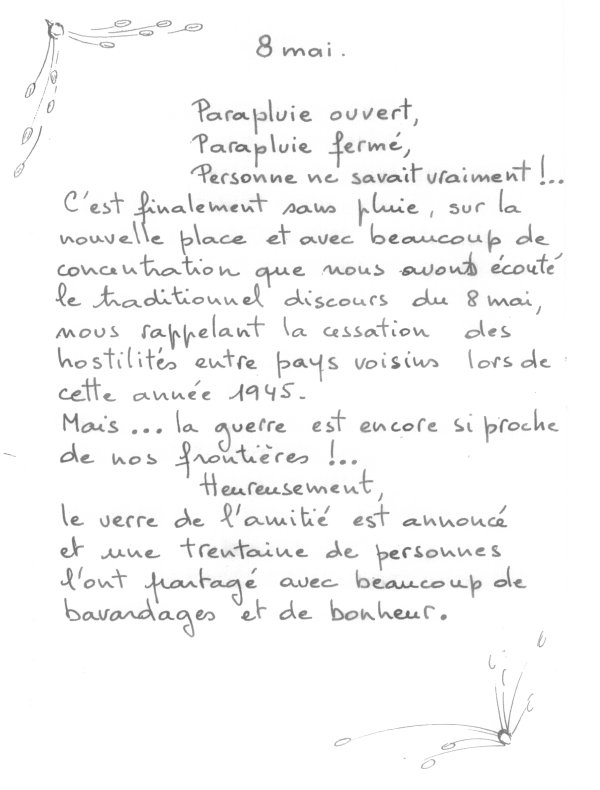 8 mai.
Parapluie ouvert,
Parapluie fermé,
Personne ne savait vraiment !..
C'est finalement sans pluie, sur la
nouvelle place et avec beaucoup de
concentration que nous avons écouté
le traditionnel discours du 8 mai,
nous rappelant la cessation des
hostilités entre pays voisins lors de
cette année 1945.
Mais ... la guerre est encore si proche
de nos frontières !..
Heureusement,
le verre de l'amitié est annoncé
et une trentaine de personnes
l'ont partagé avec beaucoup de
bavardages et de bonheur.